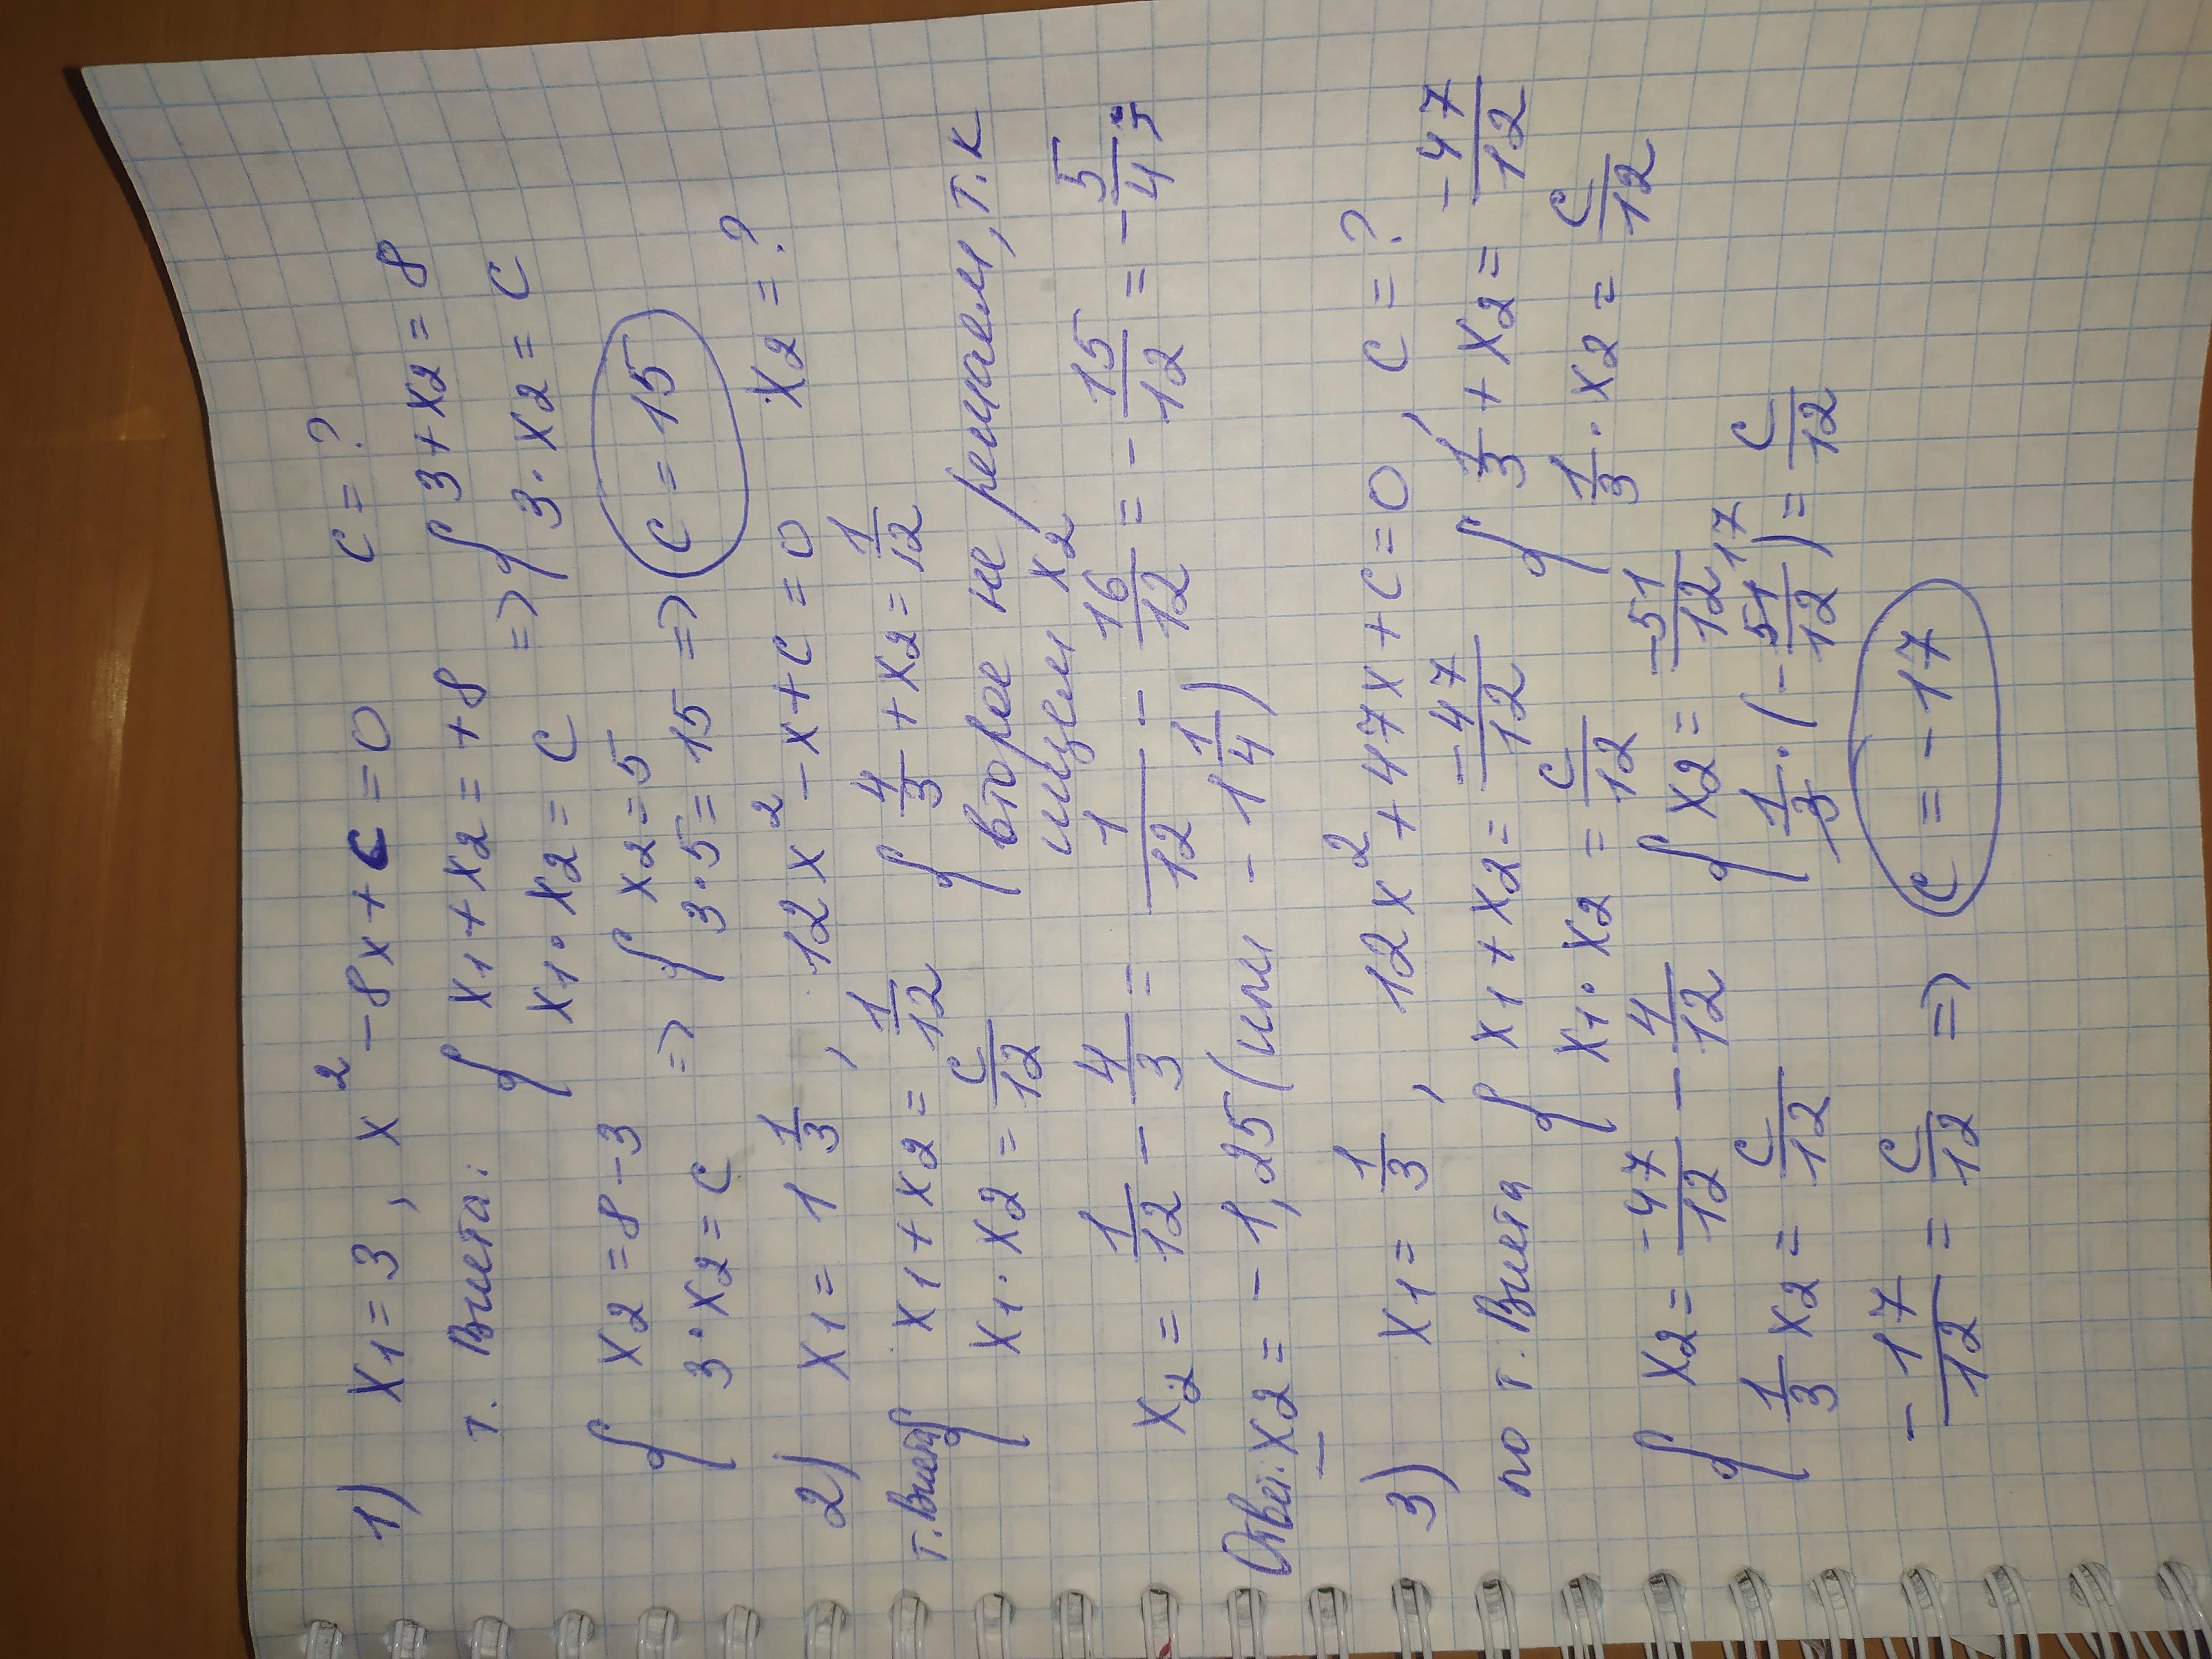 1) x₁ = 3, x² - 8x + c = 0 c = ?
т. Виета: { x₁ + x₂ = +8 => { 3 + x₂ = 8
x₁ · x₂ = c 3 · x₂ = c
{ x₂ = 8 - 3 => { x₂ = 5
3 · x₂ = c 3 · 5 = 15 => c = 15
2) x₁ = 1 1/3, 12x² - x + c = 0 x₂ = ?
т. Виета { x₁ + x₂ = 1/12 { 4/3 + x₂ = 1/12
x₁ · x₂ = c/12 второе не решаем, т.к
ищем x₂
x₂ = 1/12 - 4/3 = 1/12 - 16/12 = - 15/12 = - 5/4 ;
Ответ: x₂ = - 1,25 (или - 1 1/4)
3) x₁ = 1/3, 12x² + 47x + c = 0, c = ?
по т. Виета { x₁ + x₂ = -47/12 { 1/3 + x₂ = -47/12
x₁ · x₂ = c/12 1/3 · x₂ = c/12
{ x₂ = -47/12 - 4/12 { x₂ = -51/12
1/3 x₂ = c/12 1/3 · (- 51/12) = c/12 17
- 17/12 = c/12 => c = - 17